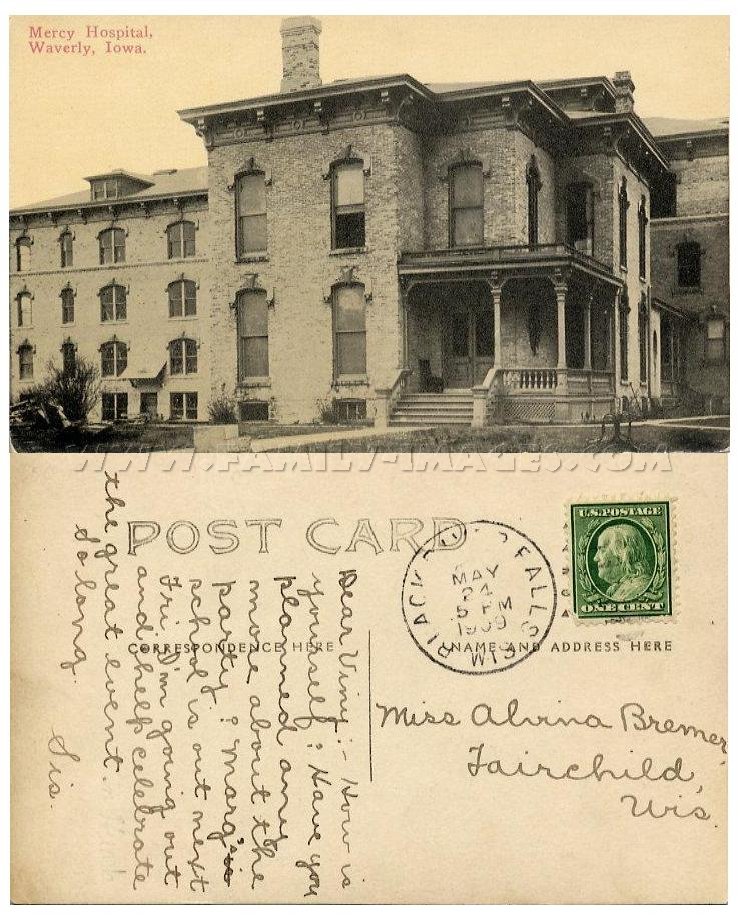 Mercy Hospital,
Waverly, Iowa.
WWW.FAMILY-IMAGES.COM
POST CARD
CORRESPONDENCE HERE
NAME AND ADDRESS HERE
BLACK RIVER FALLS
WIS
MAY
24
5 PM
1909
U.S. POSTAGE
ONE CENT
Miss Alvina Bremer,
Fairchild,
Wis.
Dear Viny:- How is
yourself? Have you
planned any
more about the
party? Marg's
school is out next
Fri. I'm going out
and help celebrate
the great event.
So long.
Sis.